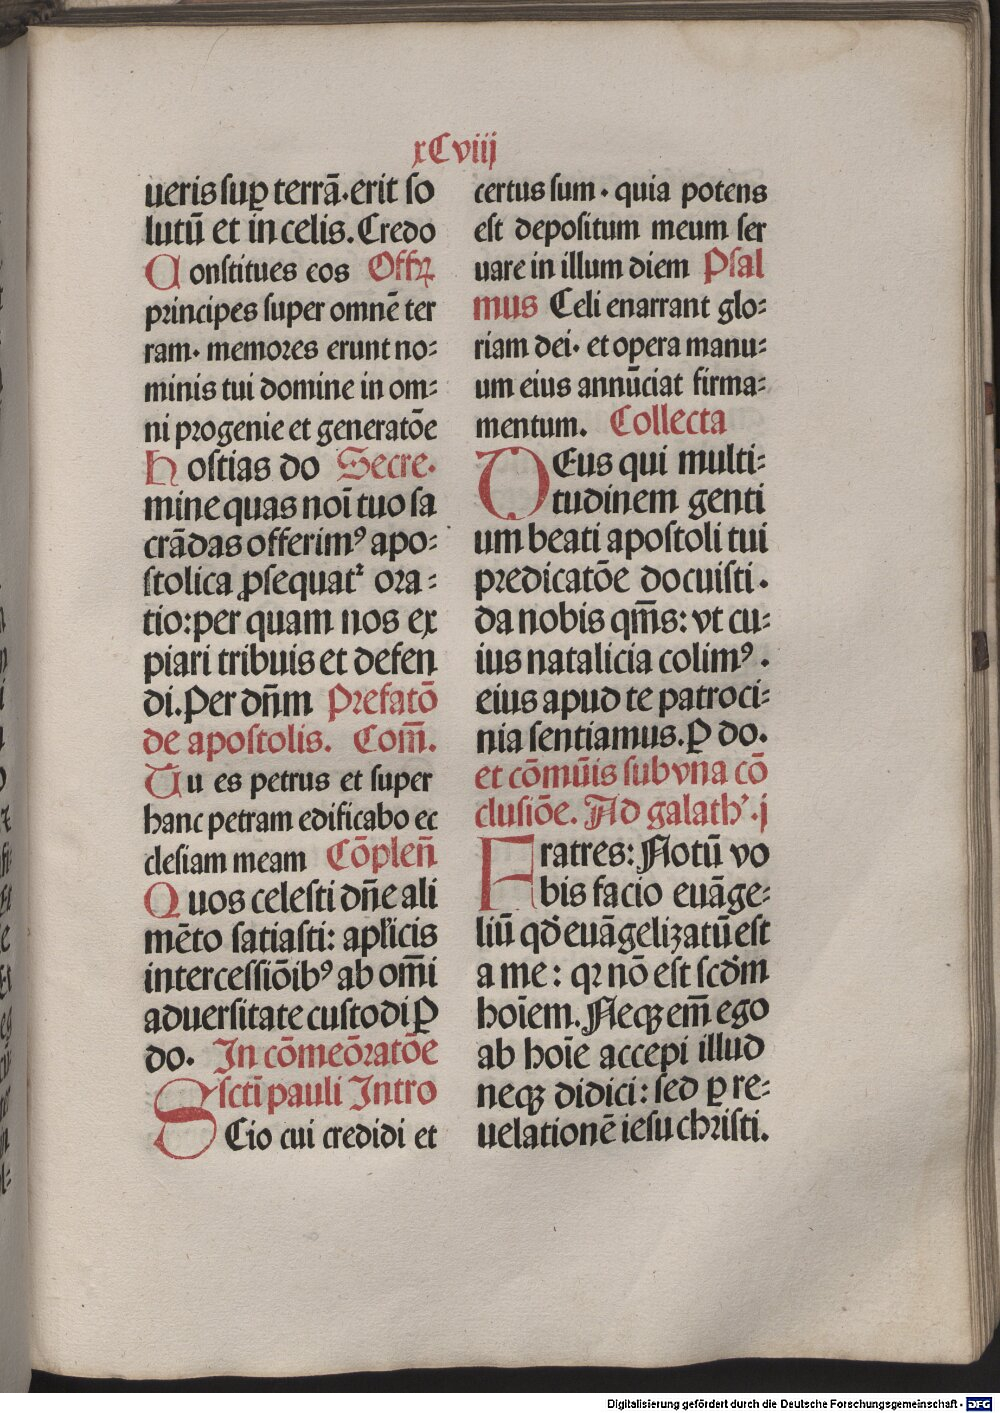 xCviij
ueris sup̲ terrā·erit so
lutū et in celis. Credo
Constitues eos Offꝝ
principes super omnē ter
ram· memores erunt no⸗
minis tui domine in om⸗
ni progenie et generatōe
hostias do Secre·
mine quas noī tuo sa
crādas offerimꝰ apo⸗
stolica ꝓsequat᷑ ora⸗
tio: per quam nos ex
piari tribuis et defen
di. Per dn̄m Prefatō
de apostolis. Com̄.
Tu es petrus et super
hanc petram edificabo ec
clesiam meam Cōplen̄
Quos celesti dn̄e ali
mēto satiasti: apl̓icis
intercessiōibꝰ ab om̄i
aduersitate custodi Ꝑ
do. In cōmeōratōe
Scti̅ pauli Intro
SCio cui credidi et
certus sum · quia potens
est depositum meum ser
uare in illum diem Psal
mus Celi enarrant glo⸗
riam dei· et opera manu⸗
um eius annūciat firma⸗
mentum. Collecta
DEus qui multi⸗
tudinem genti
um beati apostoli tui
predicatōe docuisti·
da nobis qm̄s: vt cu⸗
ius natalicia colimꝰ.
eius apud te patroci⸗
nia sentiamus. Ꝑ do.
et cōmūis sub vna cō
clusiōe. Ad galath̓. j
Fratres: Notū vo
bis facio euāge⸗
liū qd̓ euāgelizatū est
a me: qꝛ nō est scd̓m
hoīem. Neqꝫ em̄ ego
ab hoīe accepi illud
neqꝫ didici: sed ꝑ re⸗
uelationē iesu christi.
Digitalisierung gefördert durch die Deutsche Forschungsgemeinschaft - DFG